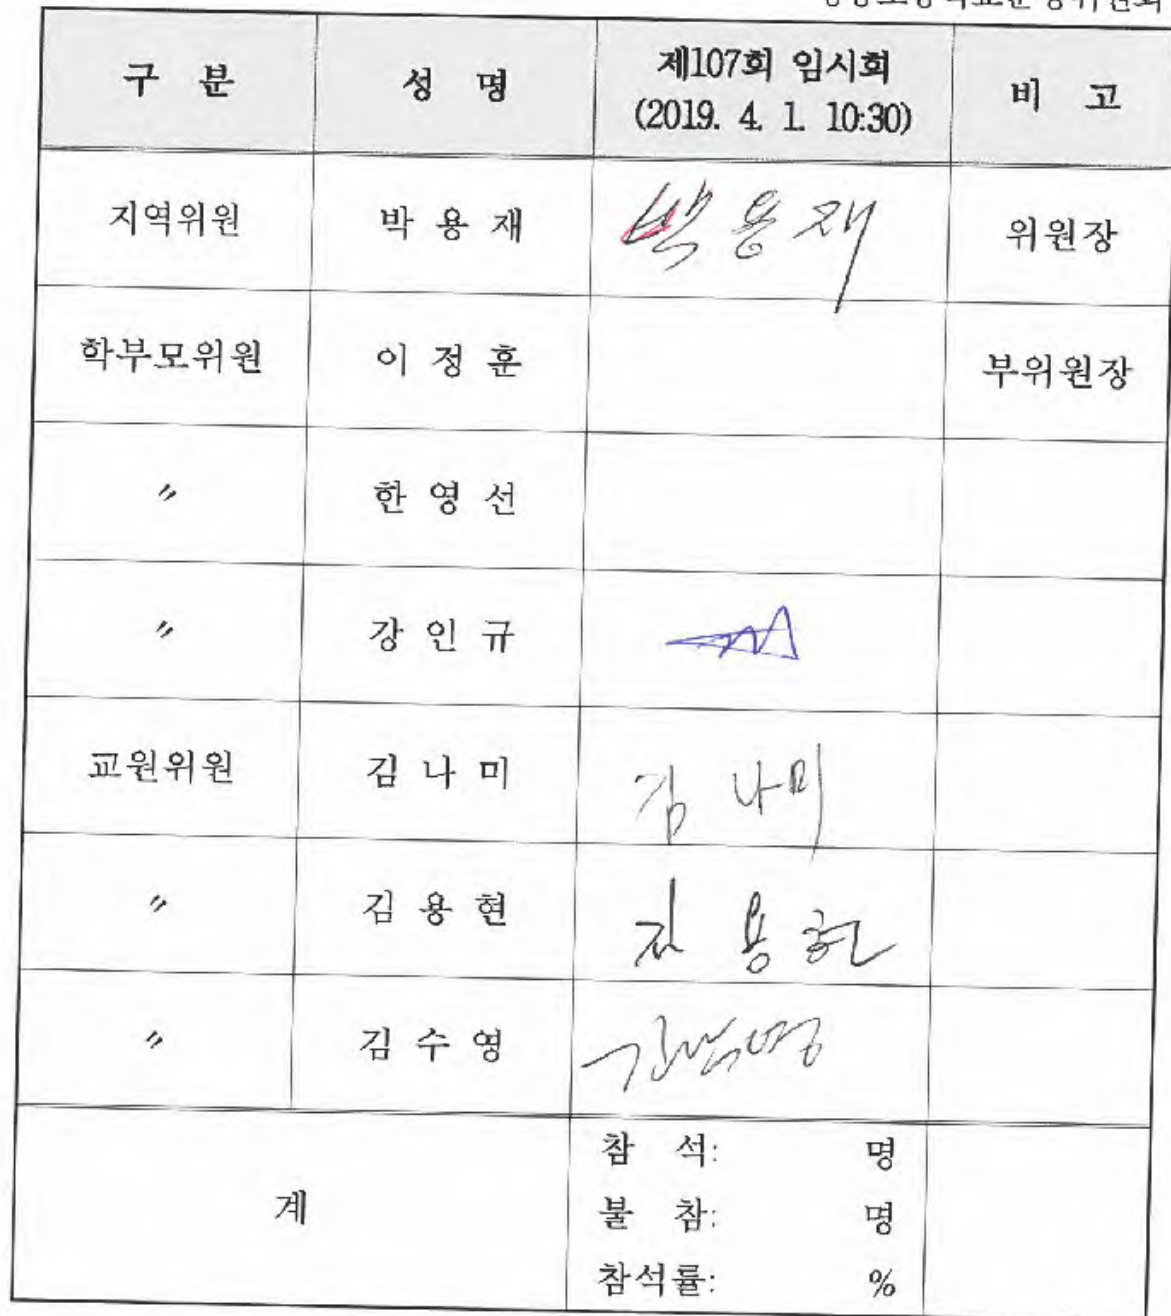 구 분 성 명 제107회 임시회 비 고
(2019. 4. 1. 10:30)
지역위원 박 용 재 박 용 재 위원장
학부모위원 이 정 훈 부위원장
〃 한 영 선
〃 강 인 규
교원위원 김 나 미 김 나미
〃 김 용 현 김 용 현
〃 김 수 영 김수영
계
참 석: 명
불 참: 명
참석률: %